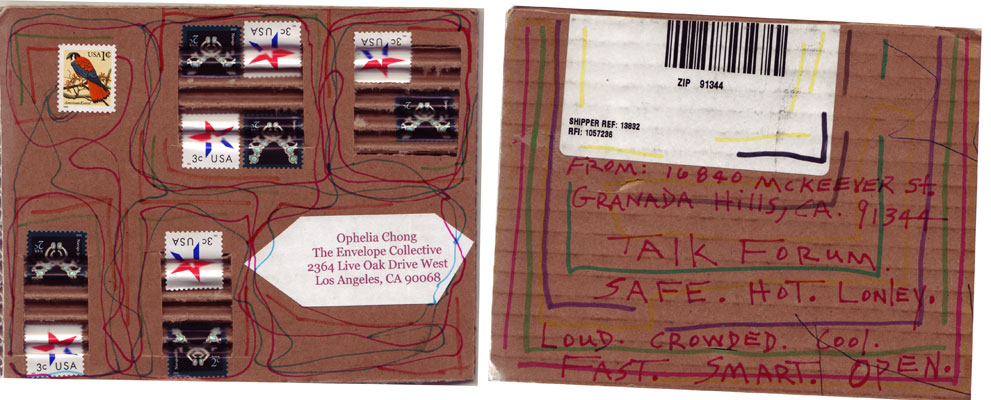 USA 1¢
American Kestrel
2¢
3c USA
3c USA
2¢
3c USA
2¢
2¢
3c USA
3c USA
2¢
Ophelia Chong
The Envelope Collective
2364 Live Oak Drive West
Los Angeles, CA 90068
ZIP 91344
SHIPPER REF: 13832
RFI: 1057236
FROM: 16840 McKEEVER St.
GRANADA HILLS, CA. 91344
TALK FORUM.
SAFE. HOT. LONLEY.
LOUD. CROWDED. COOL.
FAST. SMART. OPEN.